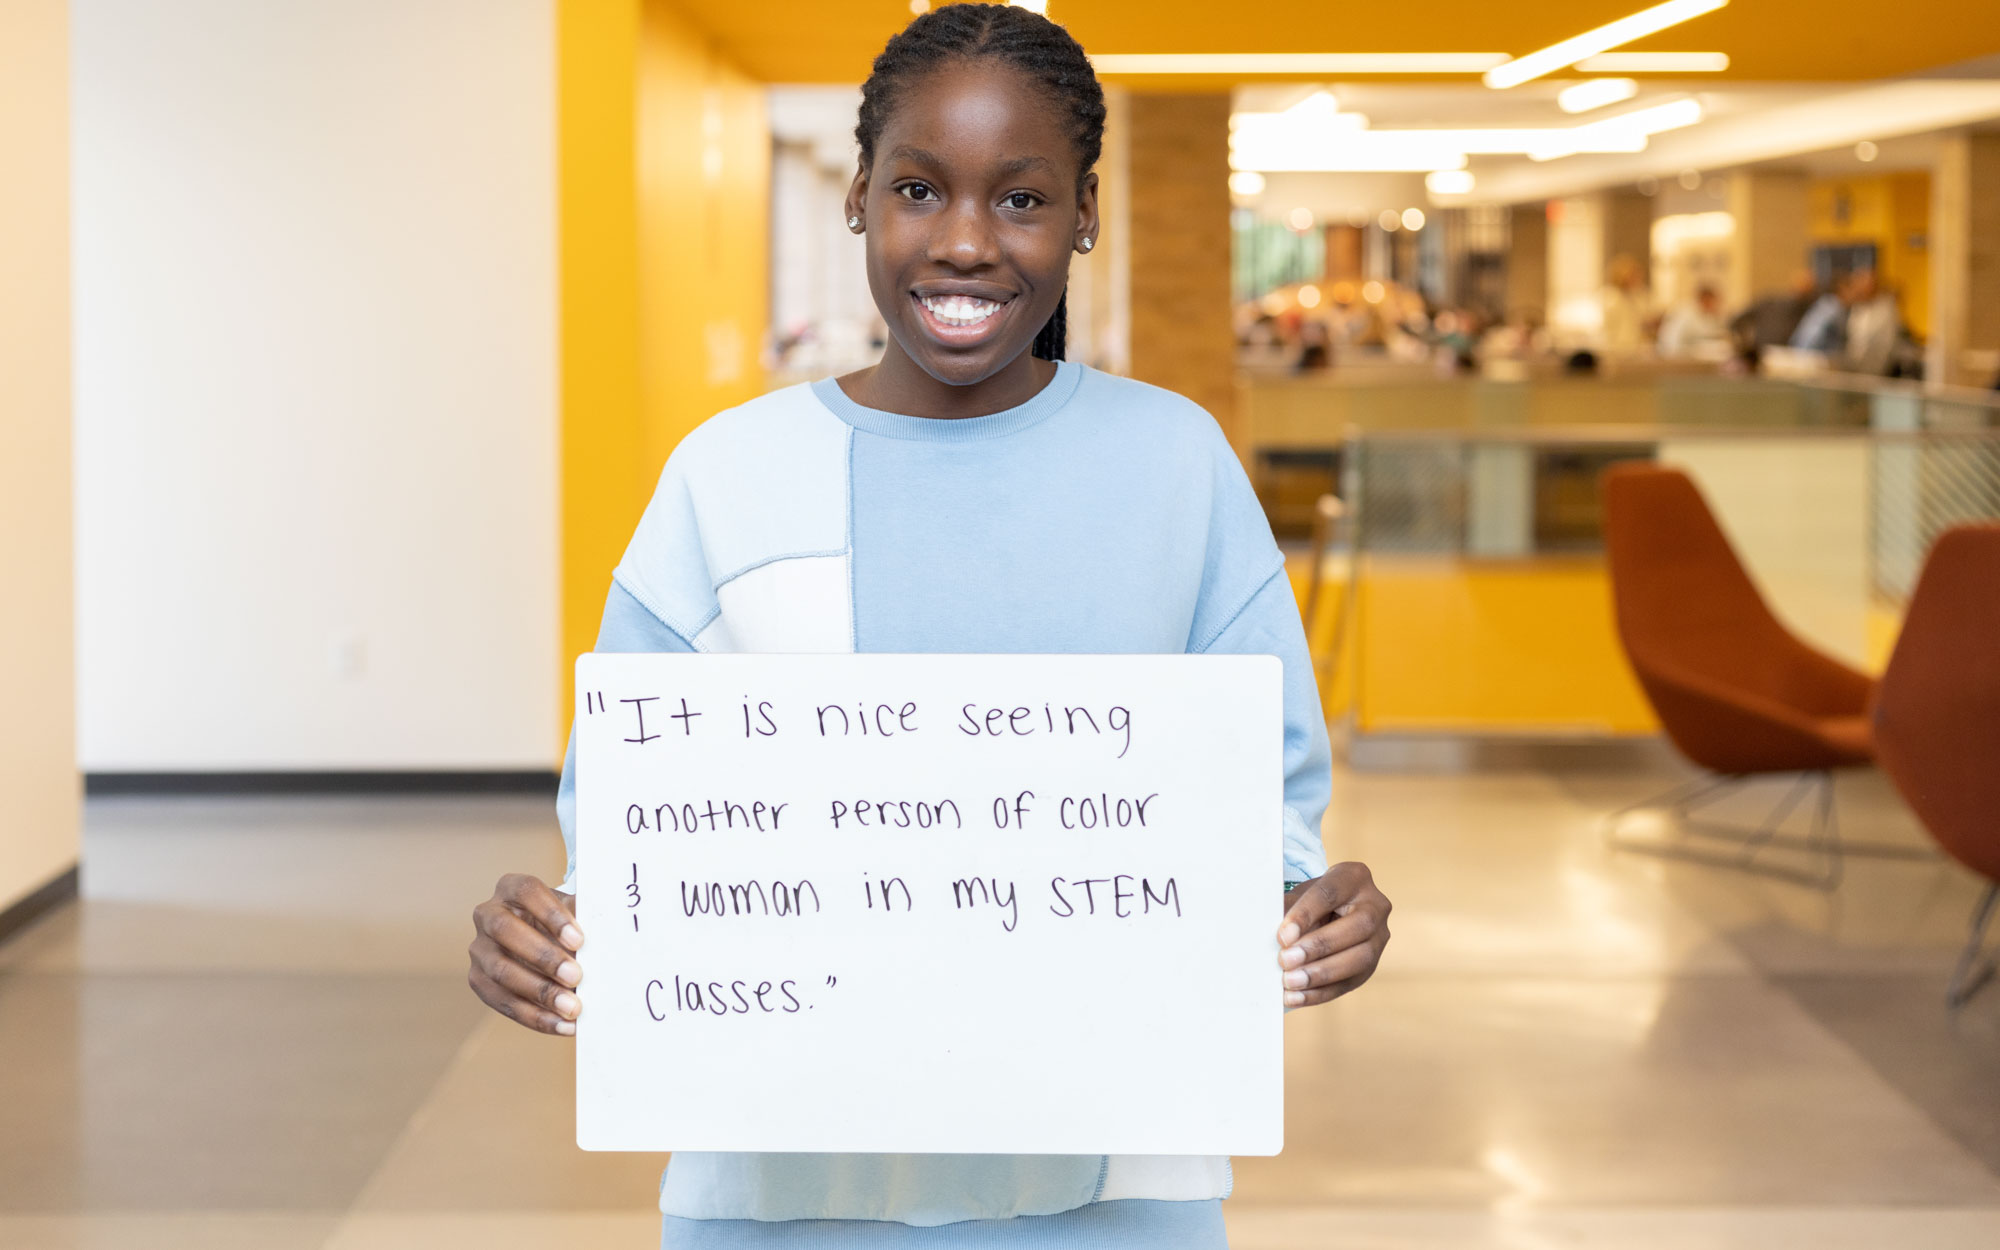 "It is nice seeing
another person of color
& woman in my STEM
classes."